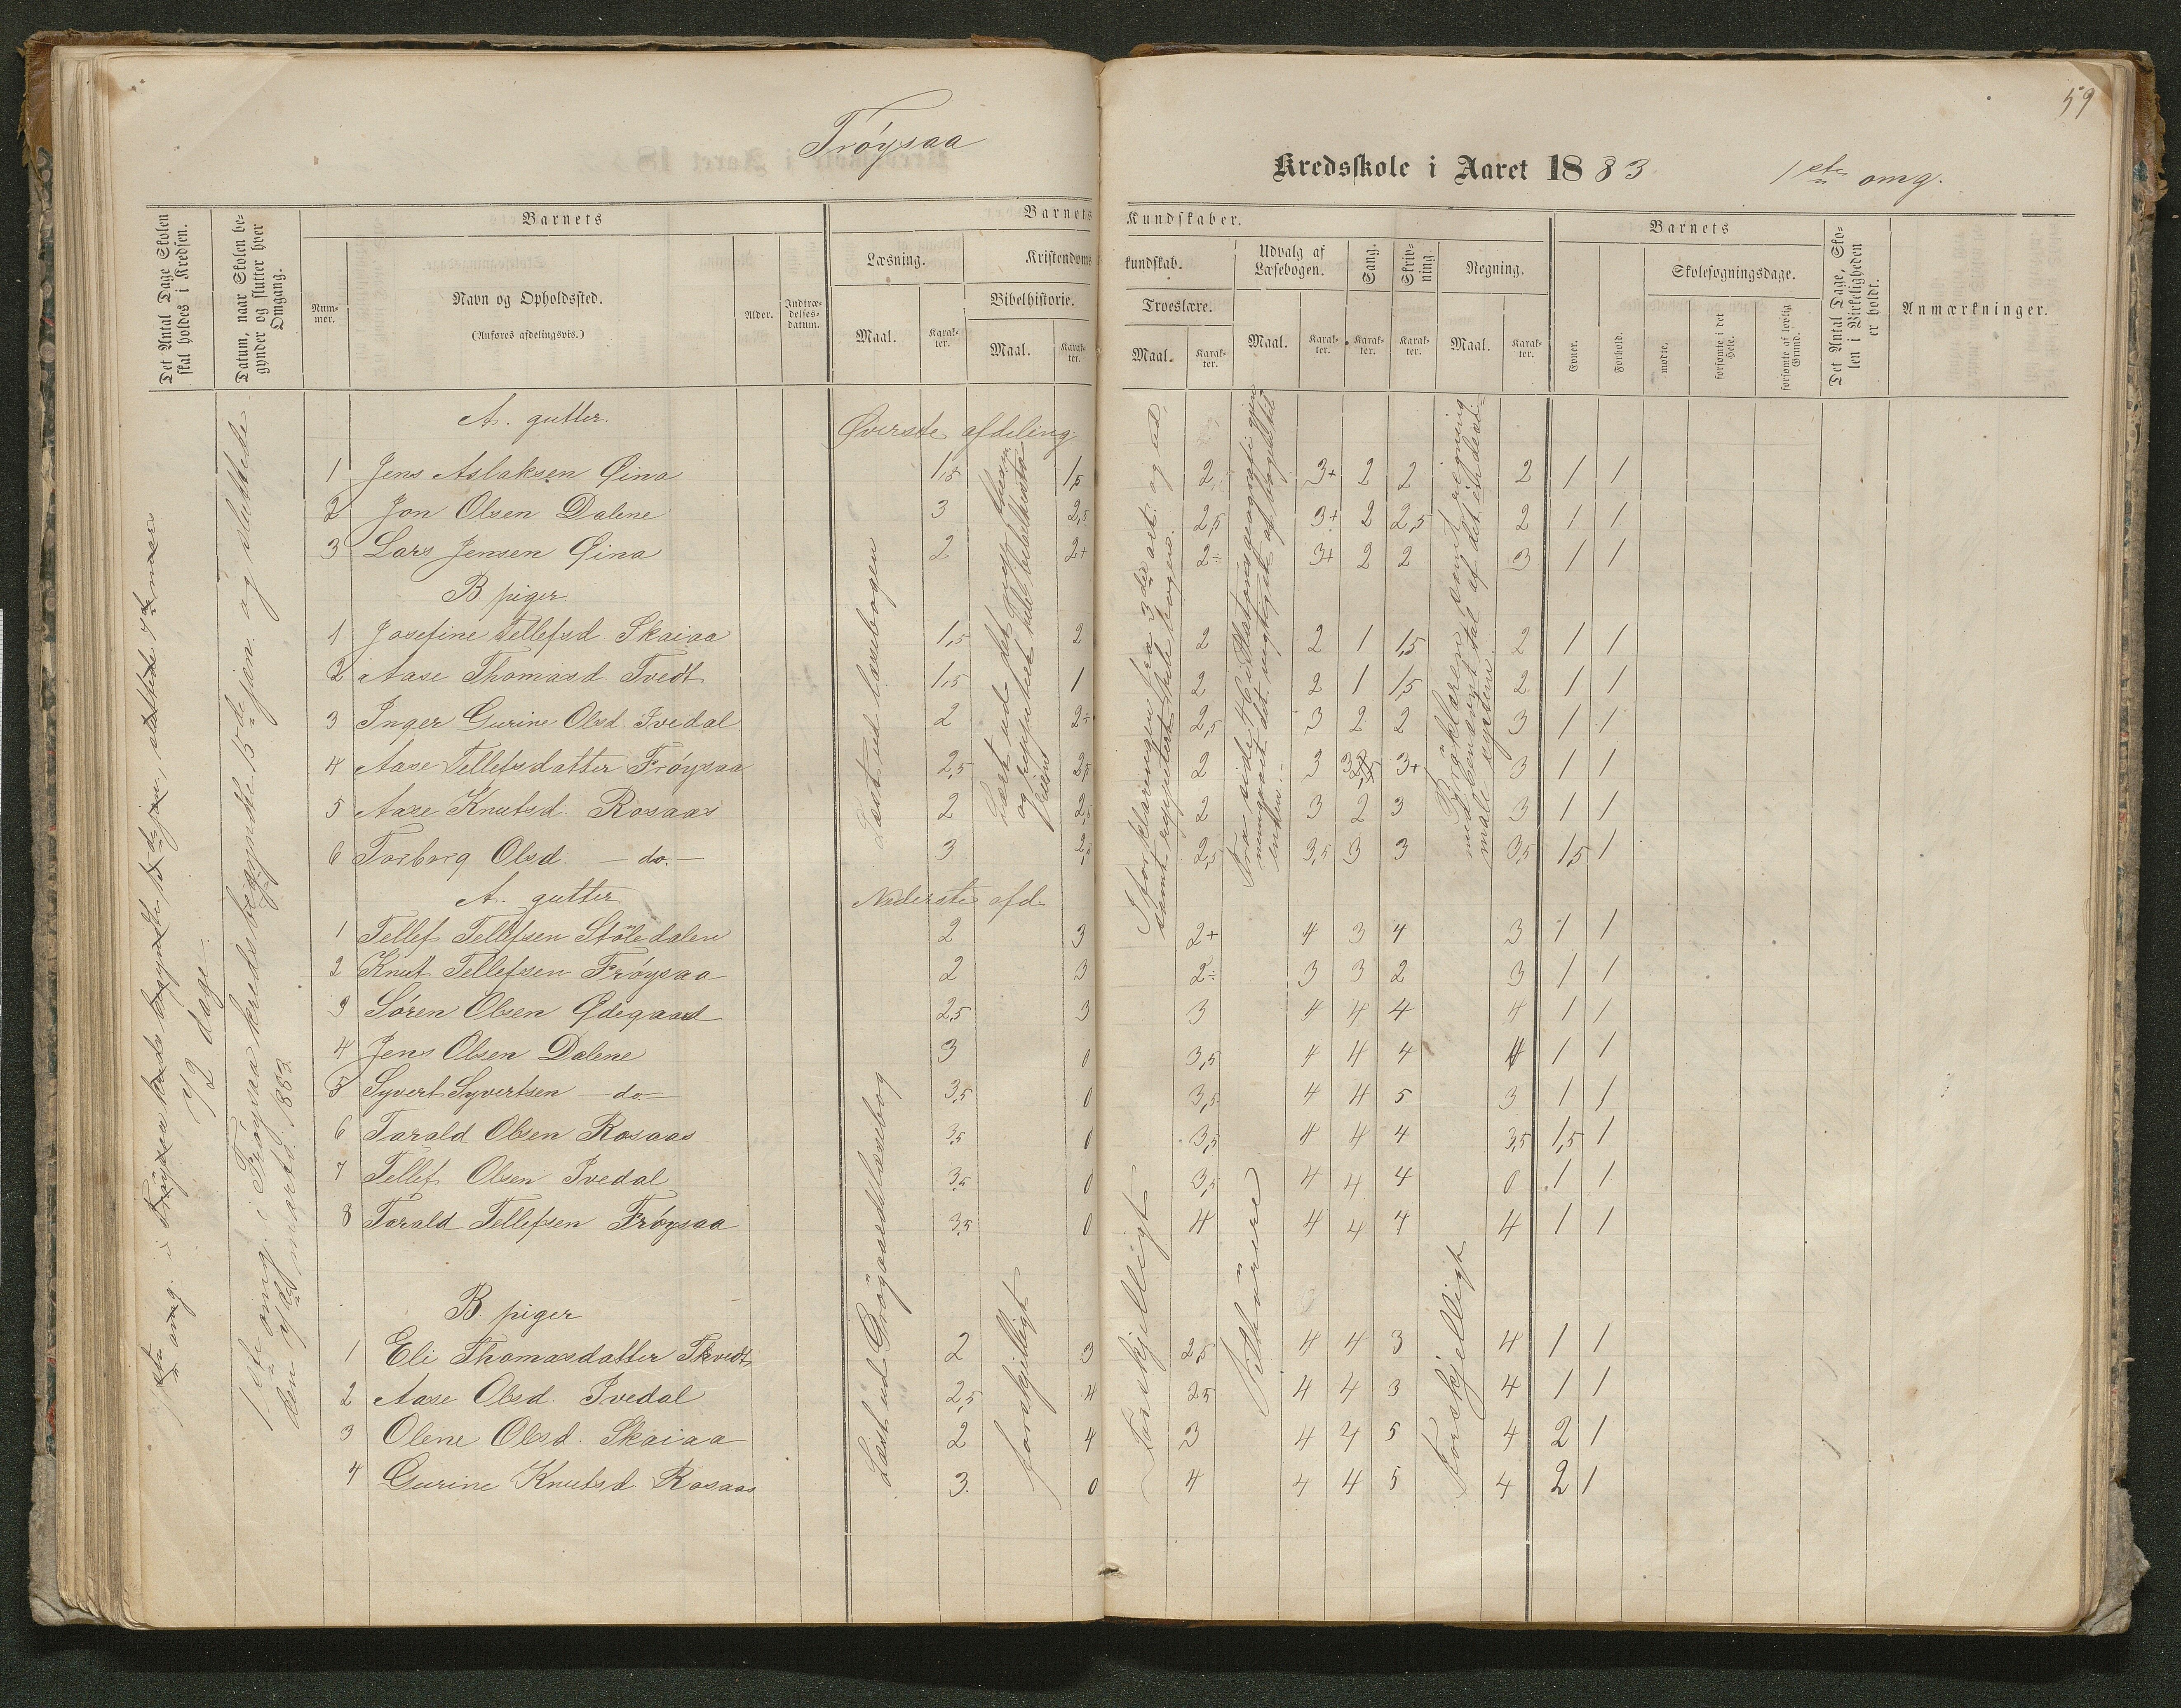 59
Frøysaa
Kredsskole i Aaret 1883
1ste omg.
Det Antal Dage Skolen skal holdes i Kredsen.
Datum, naar Skolen begynder og slutter hver Omgang.
Barnets
Nummer.
Navn og Opholdssted.
(Anføres afdelingsvis.)
Alder.
Indtrædelsesdatum.
Barnets Kundskaber.
Læsning.
Maal.
Karakter.
Kristendomskundskab.
Bibelhistorie.
Maal.
Karakter.
Troeslære.
Maal.
Karakter.
Udvalg af Læsebogen.
Maal.
Karakter.
Sang.
Karakter.
Skrivning
Karakter.
Regning.
Maal.
Karakter.
Barnets
Evner.
Forhold.
Skolesøgningsdage.
mødte.
forsømte i det Hele.
forsømte af lovlig Grund.
Det Antal Dage, Skolen i Virkeligheden er holdt.
Anmærkninger.
72 dage
1ste omg. i Frøysaa kreds begyndte 15de jan. og sluttede
marts 1883.
A. gutter. Øverste afdeling
1 Jens Aslaksen Øina 1,5 1,5 2 3+ 2 2 2 1 1
2 Jon Olsen Dalene 3 2,5 2,5 3+ 2 2,5 2 1 1
3 Lars Jensen Øina 2 2+ 2÷ 3+ 2 2 3 1 1
B. piger.
1 Josefine Tellefsd. Skaiaa 1,5 2 2 2 1 1,5 2 1 1
2 Aase Thomasd. Tvedt 1,5 1 2 2 1 1,5 2 1 1
3 Inger Gurine Olsd. Ivedal 2 2÷ 2,5 3 2 2 3 1 1
4 Aase Tellefsdatter Frøysaa 2,5 2,5 2 3 3+ 3 1 1
5 Aase Knutsd. Rosaas 2 2,5 2 3 2 3 3 1 1
6 Torborg Olsd. — do. — 3 2,5 3,5 3 3 3,5 1,5 1
Læst ud læsebogen
A. gutter Nederste afd.
1 Tellef Tellefsen Stöledalen 2 3 2+ 4 3 4 3 1 1
2 Knut Tellefsen Frøysaa 2 3 2÷ 3 3 2 3 1 1
3 Søren Olsen Ødegaard 2,5 3 3 4 4 4 4 1 1
4 Jens Olsen Dalene 3 0 3,5 4 4 4 4 1 1
5 Syvert Syvertsen — do — 3,5 0 3,5 4 4 5 3 1 1
6 Tarald Olsen Rosaas 3,5 0 3,5 4 4 4 3,5 1,5 1
7 Tellef Olsen Ivedal 3,5 0 3,5 4 4 4 0 1 1
8 Tarald Tellefsen Frøysaa 3,5 0 4 4 4 4 4 1 1
B. piger
1 Eli Thomasdatter Tkvedt 2 3 2,5 4 4 3 4 1 1
2 Aase Olsd. Ivedal 2,5 4 2,5 4 4 3 4 1 1
3 Olene Olsd. Skaiaa 2 4 3 4 4 5 4 2 1
4 Gurine Knutsd. Rosaas 3. 0 4 4 4 5 4 2 1
Læst ud
forskjelligt
Forskjelligt
Forskjelligt